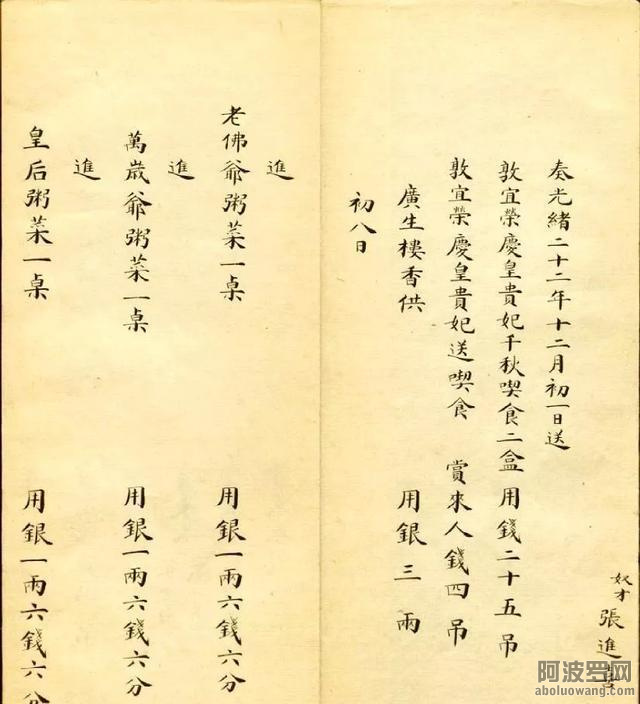 奴才 張進喜
奏光緒二十二年十二月初一日送
敦宜榮慶皇貴妃千秋喫食二盒用錢二十五吊
敦宜榮慶皇貴妃送喫食 賞來人錢四吊
廣生樓香供 用銀三兩
初八日
進
老佛爺粥菜一桌 用銀一兩六錢六分
進
萬歲爺粥菜一桌 用銀一兩六錢六分
進
皇后粥菜一桌 用銀一兩六錢六分
阿波罗网
aboluowang.com